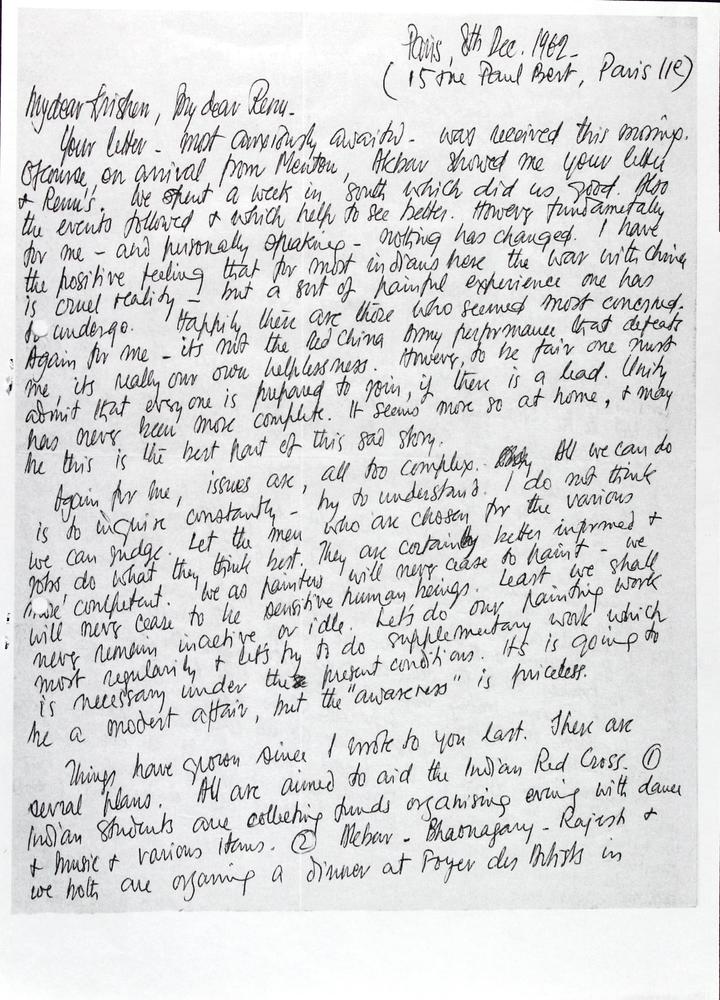 Paris, 8th Dec. 1962.
(15 rue Paul Bert, Paris 11e)
My dear Krishen, My dear Renu.
Your letter - most anxiously awaited - was received this morning.
Ofcourse, on arrival from Menton, Akbar showed me your letter
& Renu's. We spent a week in south which did us good. Also
the events followed & which help to see better. However fundametally
for me - and personally speaking - nothing has changed. I have
the positive feeling that for most indians here the war with china
is cruel reality - but a sort of painful experience one has
to undergo. Happily there are those who seemed most concerned.
Again for me - its not the Red china Army performance that defeats
me, its really our own helplessness. However, to be fair one must
admit that everyone is prepared to join, if there is a lead. Unity
has never been more complete. It seems more so at home, & may
be this is the best part of this sad story.
Again for me, issues are, all too complex. All we can do
is to inquire constantly - try to understand. I do not think
we can judge. Let the men who are chosen for the various
jobs, do what they think best. They are certainly better informed &
more competent. We as painters will never cease to paint - we
will never cease to be sensitive human beings. Least we shall
never remain inactive or idle. Let's do our painting work
most regularity & let's try to do supplementary work which
is necessary under these present conditions. Its is going to
be a modest affair, but the "awareness" is priceless.
Things have grown since I wrote to you last. There are
several plans. All are aimed to aid the Indian Red Cross. ①
Indian Students are collecting funds organising evening with dance
& music & various items. ② Akbar - Bhaonagary - Rajesh &
we both are organing a dinner at Foyer des Artists in